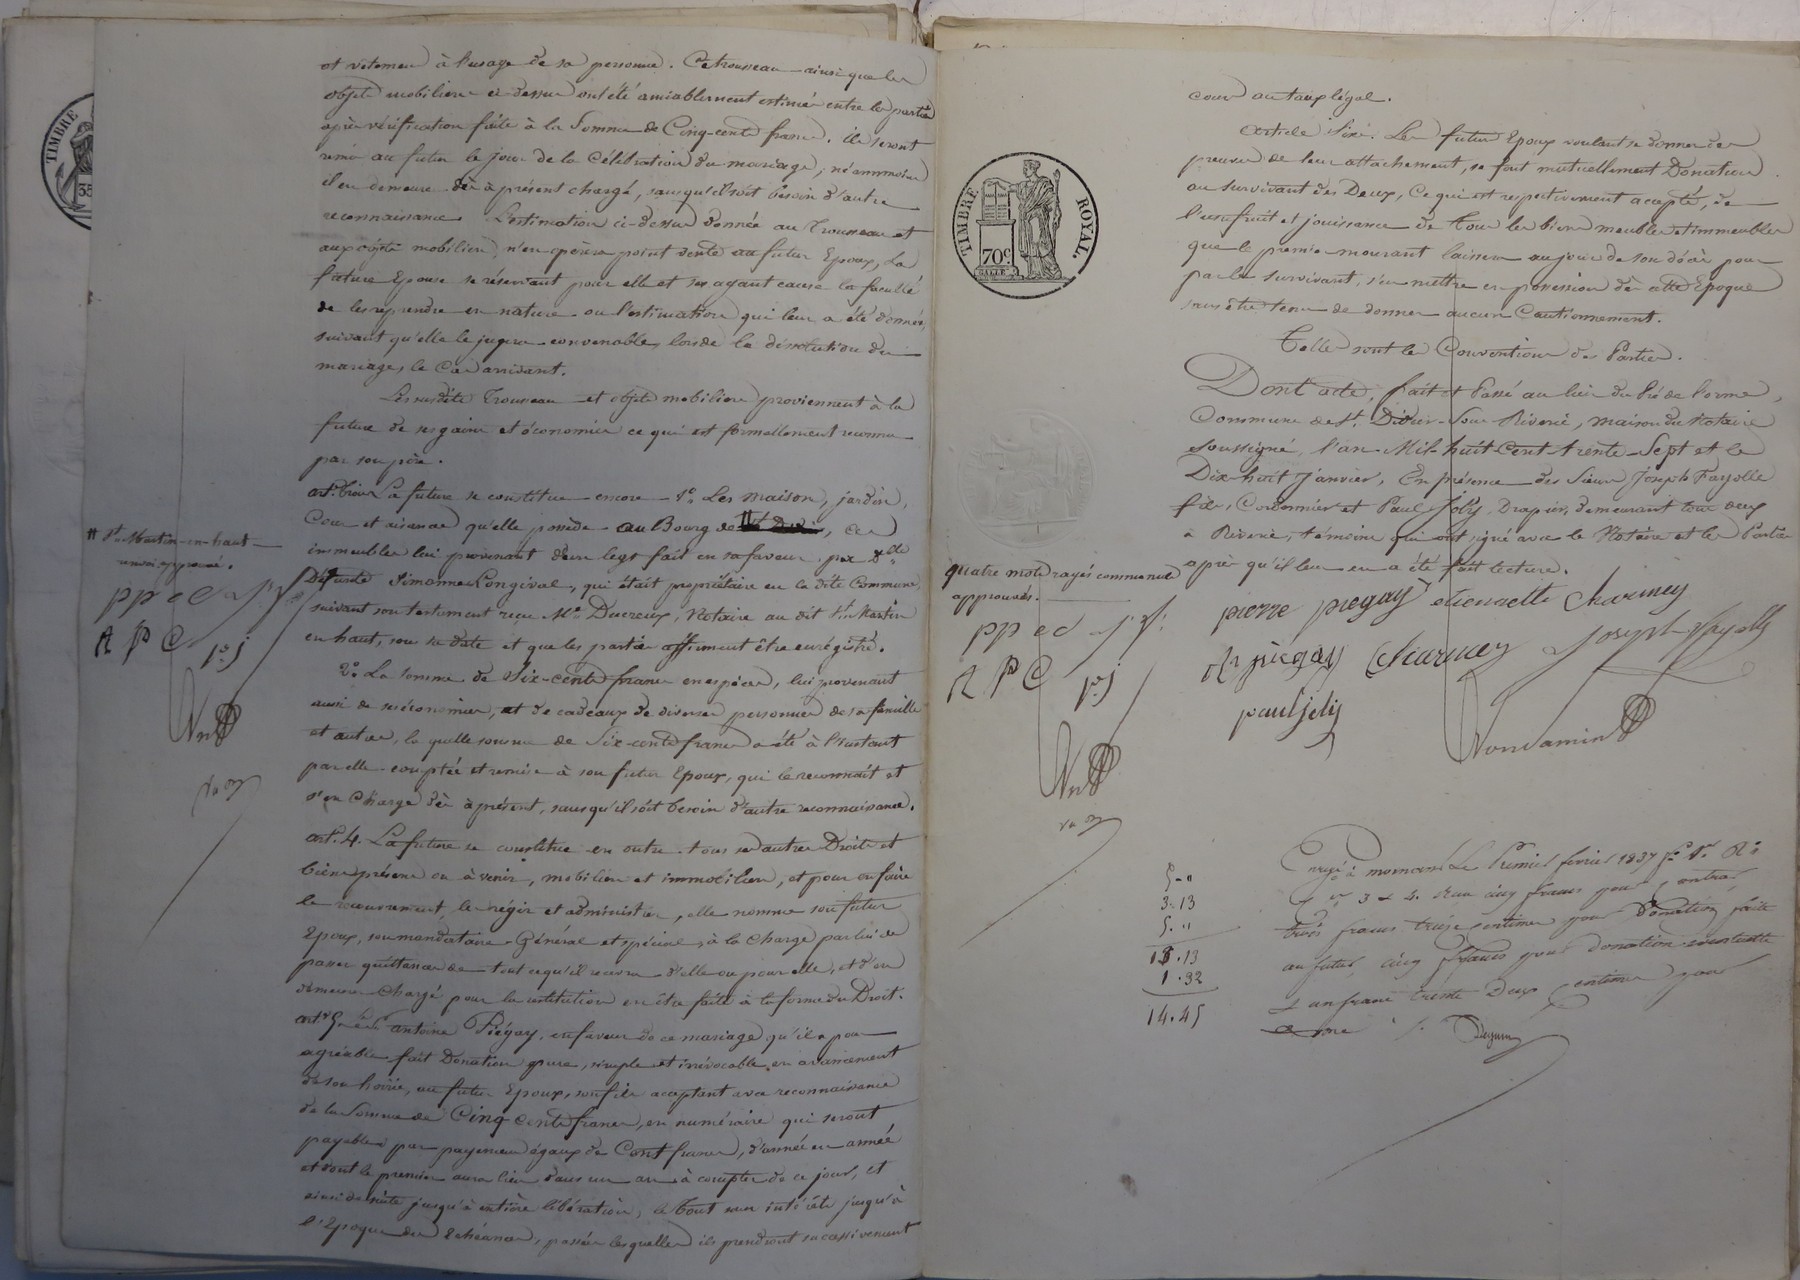 et vetemens à l'usage de sa personne. Ce trousseau ainsi que les
objets mobiliers ci-dessus ont été amiablement estimés entre les parties
après vérification faite à la Somme de Cinq-cents francs. ils seront
remis au futur le jour de la Célébration du mariage, néanmoins
il en demeure dès à présent chargé, sans qu'il soit besoin d'autre
reconnaissance. L'estimation ci-dessus donnée au Trousseau et
aux objets mobiliers, n'en opèrera point vente au futur Epoux, La
future Epouse se réservant pour elle et ses ayant cause la faculté
de les reprendre en nature ou l'estimation qui leur a été donnée,
suivant qu'elle le jugera convenable, lors de la dissolution du
mariage, le Cas arrivant.
Les susdits Trousseau et objets mobiliers proviennent à la
future de ses gains et économies ce qui est formellement reconnu
par son père.
art. trois La future se constitue encore 1° Les maison, jardin,
Cour et aisances qu'elle possède au Bourg de , ces
immeubles lui provenant d'un legs fait en sa faveur par
défunte Simonne Longival, qui était propriétaire en la dite Commune,
suivant son testament reçu Me Ducreux, Notaire au dit St Martin
en haut, sous sa date et que les parties affirment être enrégistré.
2° La somme de Six-cents francs en espèces, lui provenant
aussi de ses économies, et de cadeaux de diverses personnes de sa famille
et autres, la quelle somme de Six-cents francs a été à l'instant
par elle comptée et remise à son futur Epoux, qui le reconnaît et
s'en Charge dès à présent, sans qu'il soit besoin d'autre reconnaissance.
art. 4. La future se constitue en outre tous ses autres Droits et
biens présens ou à venir, mobiliers et immobiliers, et pour en faire
le recouvrement, les régir et administrer, elle nomme son futur
Epoux, son mandataire Général et spécial, à la Charge par lui de
passer quittance de tout ce qu'il recevra d'elle ou pour elle, et d'en
demeurer Chargé pour la restitution en être faite à la forme du Droit.
art. 5 antoine Piégay, en faveur de ce mariage qu'il a pour
agréable fait Donation pure, simple et irrévocable, en avancement
de son hoirie, au futur Epoux, son fils acceptant avec reconnaissance
de la Somme de Cinq cents francs, en numéraire qui seront
payables par payemens égaux de Cent francs, d'année en année
et dont le premier aura lieu dans un an à compter de ce jour, et
ainsi de suite jusqu'à entière libération, le Tout sans intérêts jusqu'à
l'Epoque des échéances, passées lesquelles ils prendront successivement
# St Martin-en-haut
renvoi approuvé.
pp ec J.F.
A P C pj
cours au taux légal.
Article Six. Les futurs Epoux voulant se donner des
preuves de leur attachement, se font mutuellement Donation
au survivant des Deux, Ce qui est respectivement accepté, de
l'usufruit et jouissance de Tous les biens meubles et immeubles
que le premier mourant laissera au jour de son décès pour
par le survivant, s'en mettre en possession dès cette Epoque
sans être tenu de donner aucun Cautionnement.
Telles sont les Conventions des Parties.
Dont acte, fait et Passé au lieu du Pré de l'orme,
Commune de St. Didier-Sous Riverie, maison du Notaire
soussigné, l'an Mil-huit Cent trente-Sept et le
Dix-huit Janvier, En présence des Sieurs Joseph Fayolle
fils, Cordonnier et Paul Joly, Drapier, demeurant tous deux
à Riverie, témoins qui ont signé avec le Notaire et les Parties
après qu'il leur en a été fait lecture.
quatre mots rayés comme nuls
approuvés.
pp ec J.F.
A P C pj
pierre piegay etiennette Charmey
piegay Charmey Joseph Fayolle
paul joly
TIMBRE ROYAL.
70c
TIMBRE
35
5 - "
3. 13
5. "
13. 13
1. 32
14. 45
Enregé à mornant Le Premier fevrier 1837
3 & 4. Reçu cinq francs pour Contrat,
trois francs treize centimes pour Donation faite
au futur, cinq francs pour donation mutuelle
& un franc trente Deux Centimes pour